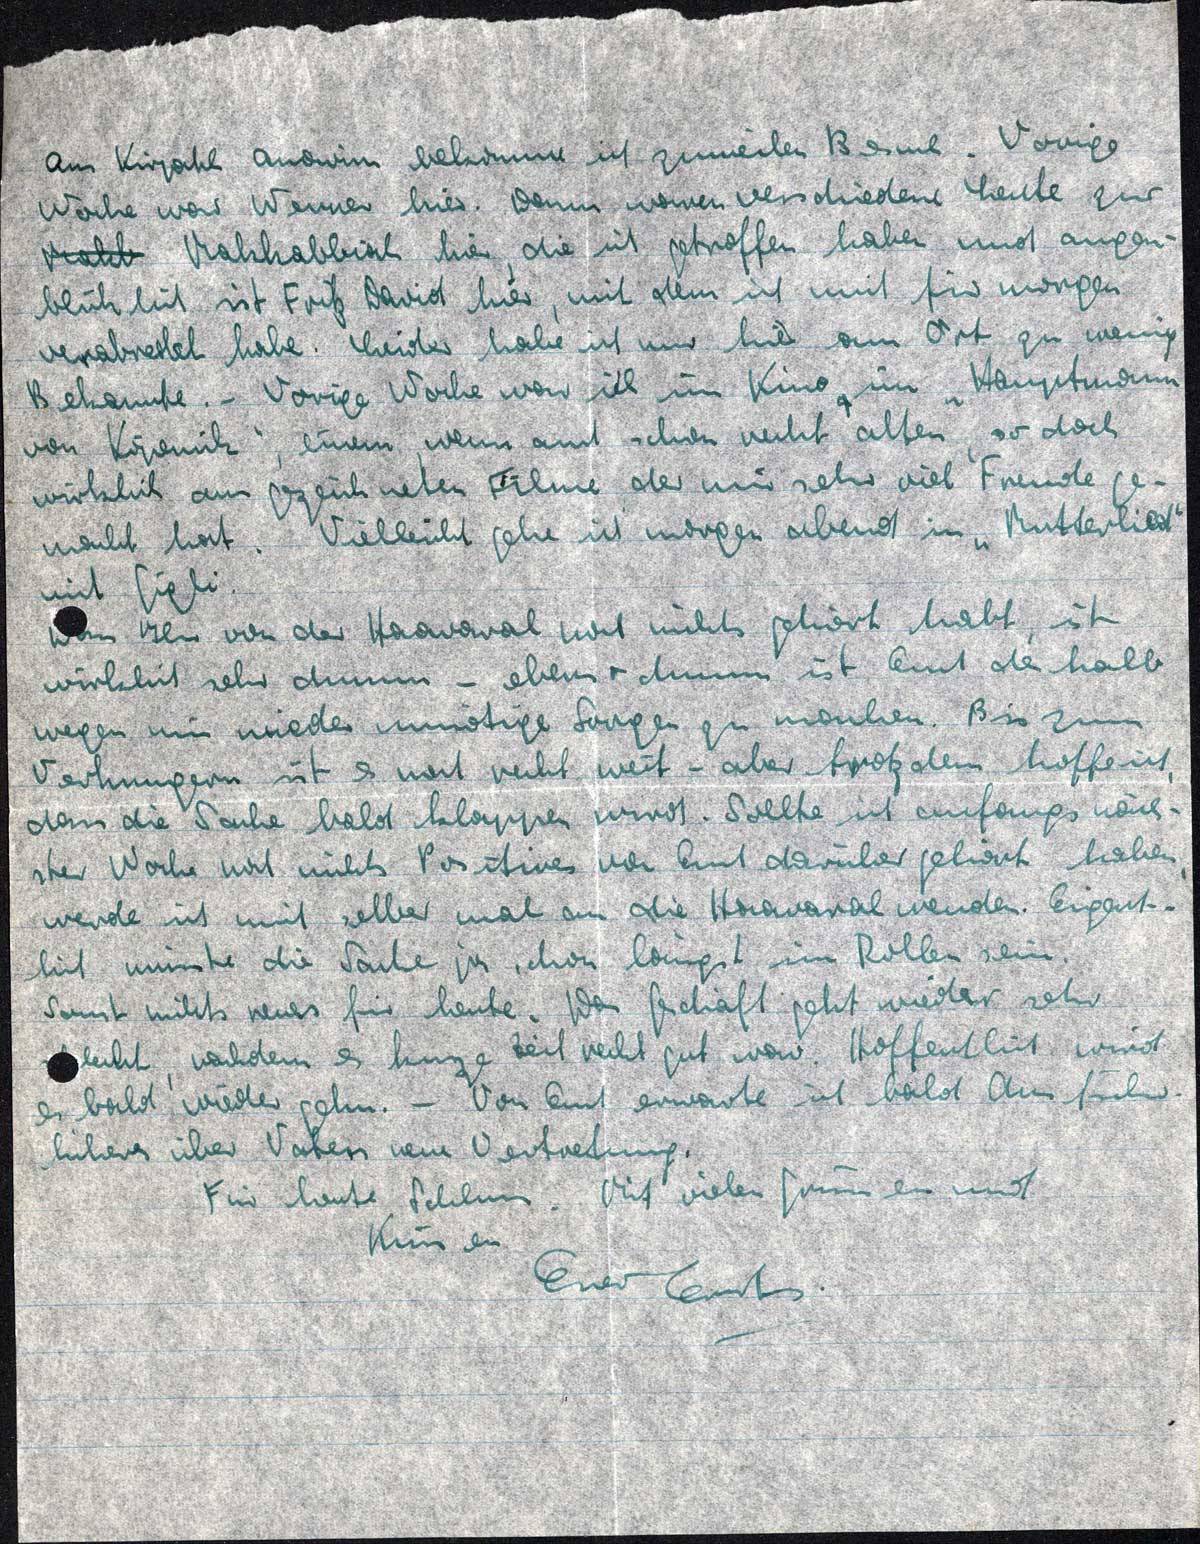 Aus Kirjath Anavim bekomme ich zuweilen Besuch. Vorige
Woche war Werner hier. Dann waren verschiedene Leute zur
Makkabbiah hier, die ich getroffen habe und augen-
blicklich ist Fritz David hier, mit dem ich mich für morgen
verabredet habe. Leider habe ich nur hier am Ort zu wenig
Bekannte. – Vorige Woche war ich im Kino, im „Hauptmann
von Köpenik", einem, wenn auch schon recht alten, so doch
wirklich ausgezeichneten Filme der mir sehr viel Freude ge-
macht hat. Vielleicht gehe ich morgen abend in „Mutterlied"
mit Gigli.
Dass Ihr von der Haavarah noch nichts gehört habt, ist
wirklich sehr dumm – ebenso dumm ist Euch deshalb
wegen mir wieder unnötige Sorgen zu machen. Bis zum
Verhungern ist es noch recht weit – aber trotzdem hoffe ich,
dass die Sache bald klappen wird. Sollte ich anfangs näch-
ster Woche noch nichts Positives von Euch darüber gehört haben,
werde ich mich selber mal an die Haavarah wenden. Eigent-
lich müsste die Sache ja schon längst im Rollen sein.
Sonst nichts neues für heute. Das Geschäft geht wieder sehr
schlecht, nachdem es kurze Zeit recht gut war. Hoffentlich wird
es bald wieder gehn. – Von Euch erwarte ich bald Ausführ-
licheres über Vaters neue Vertretung.
Für heute Schluss. Mit vielen Grüssen und
Küssen
Euer